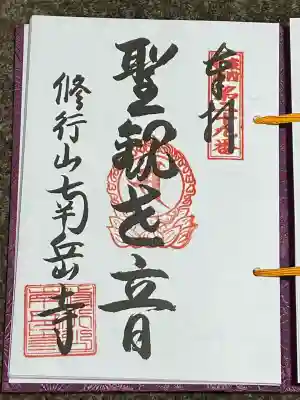 奉拝
聖観世音
修行山南岳寺